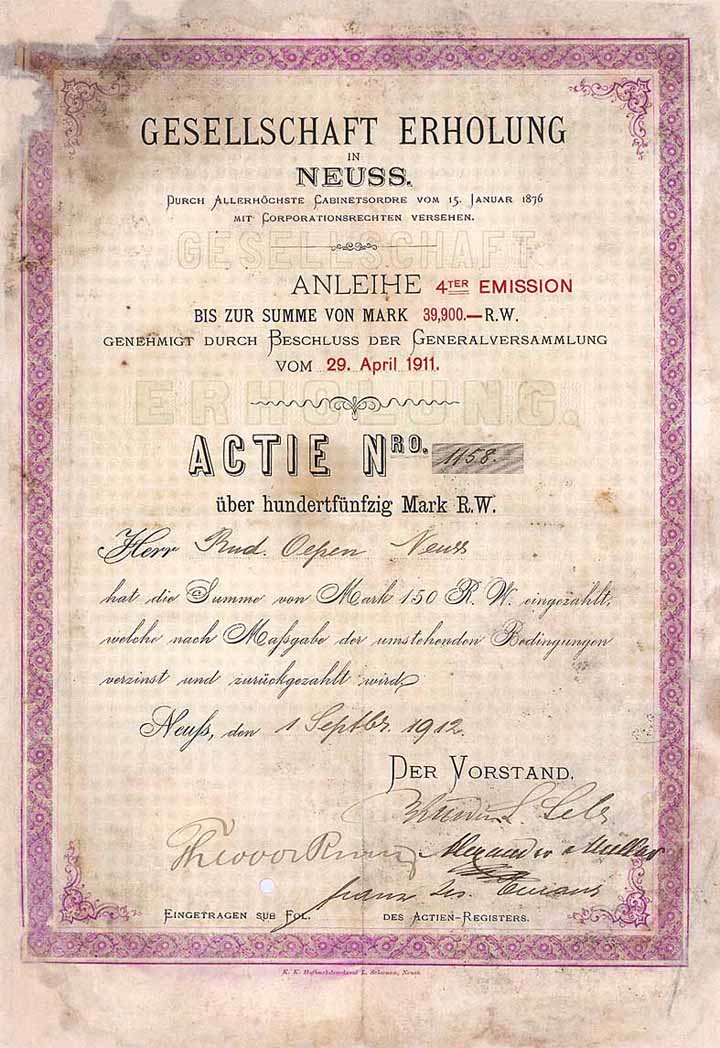 GESELLSCHAFT ERHOLUNG
IN
NEUSS.
DURCH ALLERHÖCHSTE CABINETSORDRE VOM 15. JANUAR 1876
MIT CORPORATIONSRECHTEN VERSEHEN.
GESELLSCHAFT
ANLEIHE 4TER EMISSION
BIS ZUR SUMME VON MARK 39,900.—R.W.
GENEHMIGT DURCH BESCHLUSS DER GENERALVERSAMMLUNG
VOM 29. April 1911.
ERHOLUNG.
ACTIE NRO. 1158.
über hundertfünfzig Mark R.W.
Herr Rud. Oepen Neuss
hat die Summe von Mark 150 R. W. eingezahlt,
welche nach Maßgabe der umstehenden Bedingungen
verzinst und zurückgezahlt wird.
Neuß, den 1 Septbr. 1912.
DER VORSTAND.
Theodor
Alexander Müller
Franz Jos.
EINGETRAGEN SUB FOL. DES ACTIEN-REGISTERS.
K. K. Hofbuchdruckerei L. Schwann, Neuss.